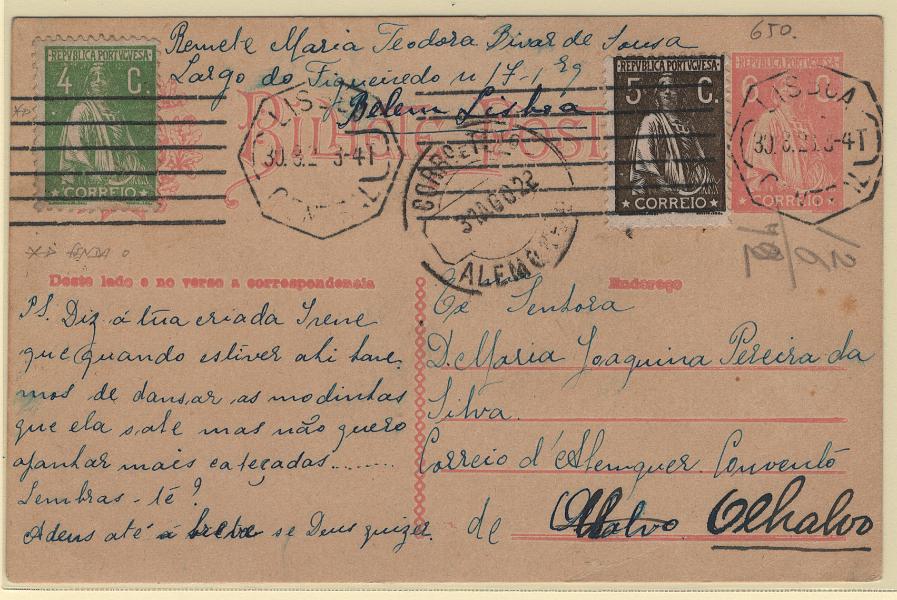 650.
Remete Maria Teodora Bivar de Sousa
Largo do Figueiredo nº 17-1º
Belem Lisboa
REPVBLICA PORTVGVESA
4 C.
CORREIO
BILHETE POSTAL
REPVBLICA PORTVGVESA
5 C.
CORREIO
REPVBLICA PORTVGVESA
6 C.
CORREIO
LISBOA
30.8.2 3-4T
CORREIO E TELEG
31 AGO 22
ALEMQUER
LISBOA
30.8.2 3-4T
Deste lado e no verso a correspondencia
Endereço
PS. Diz á tua criada Irene
que quando estiver ahi have-
mos de dansar as modinhas
que ela sabe mas não quero
apanhar mais cabeçadas........
Lembras-te?
Adeus até á breve se Deus quizer
Senhora
D. Maria Joaquina Pereira da
Silva.
Correio d'Alemquer Convento
de Olhalvo